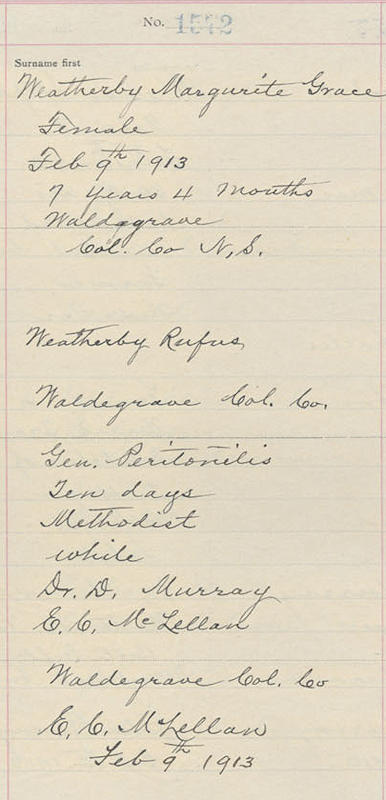 No. 1572
Surname first
Weatherby Margurite Grace
Female
Feb 9th 1913
7 years 4 months
Waldeggrave
Col. Co N.S.
Weatherby Rufus
Waldegrave Col. Co.
Gen. Peritonitis
Ten days
Methodist
while
Dr. D. Murray
E. C. McLellan
Waldegrave Col. Co
E. C. McLellan
Feb 9th 1913